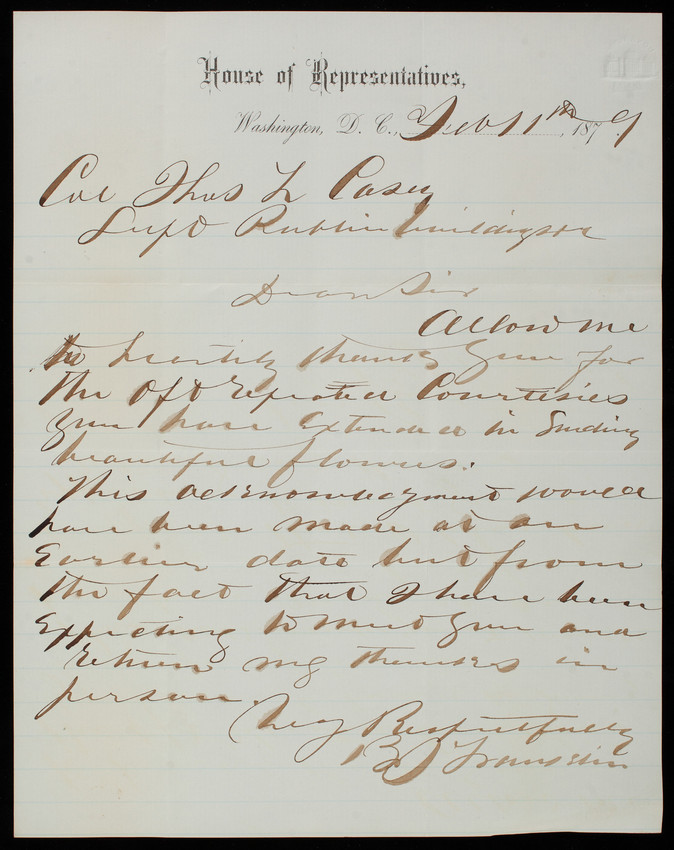 House of Representatives,
Washington, D. C., Feb 11th, 1879
Col Thos L Casey
Supt Public buildings &c
Dear Sir
Allow me
to heartily thank you for
the oft repeated Courtesies
you have Extended in Sending
beautiful flowers.
This acknowledgment would
have been made at an
Earlier date but from
the fact that I have been
Expecting to meet you and
return my thanks in
person.
Very Respectfully
B J Franklin